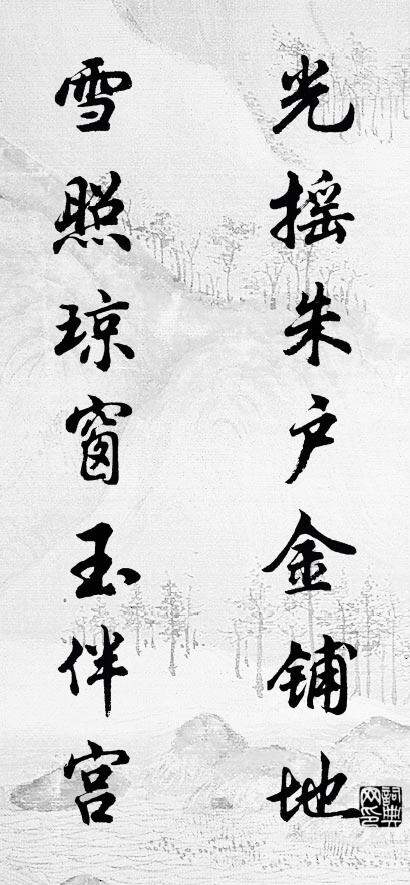 光摇朱户金铺地
雪照琼窗玉伴宫
詞典
网印